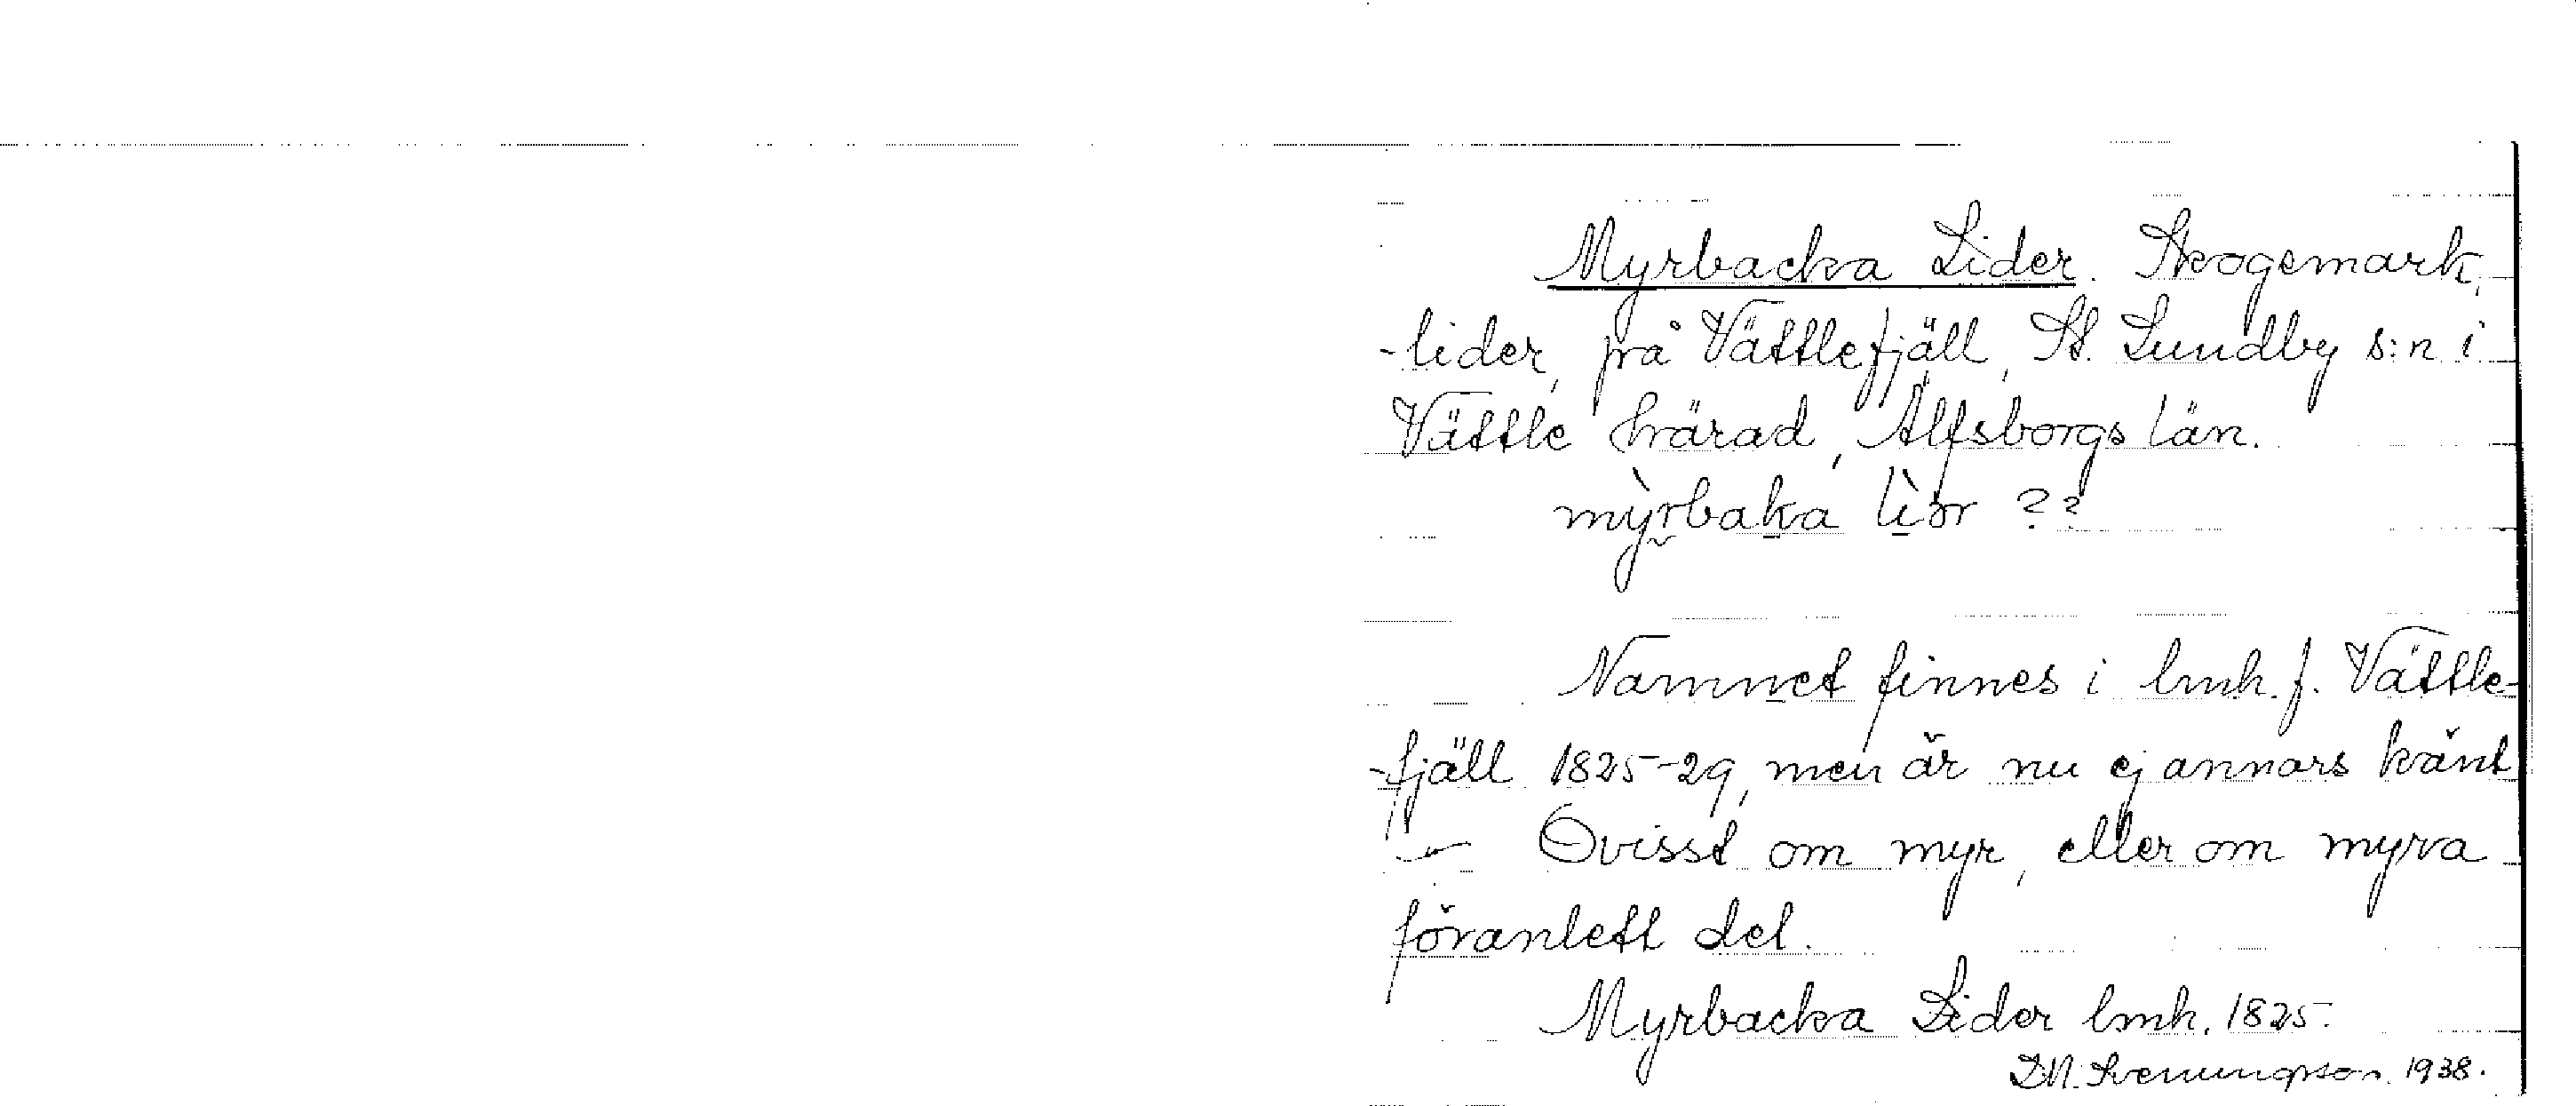 Myrbacka Lider. Skogemark,
-lider, på Vättlefjäll, St. Lundby s:n i
Vättle härad, Älfsborgs län.
mỳrbaka lìər ??
Namnet finnes i lmh. f. Vättle-
-fjäll 1825-29, men är nu ej annars känt
Ovisst om myr, eller om myra
föranlett det.
Myrbacka Lider lmh. 1825.
D.N. Svenungsson. 1938.